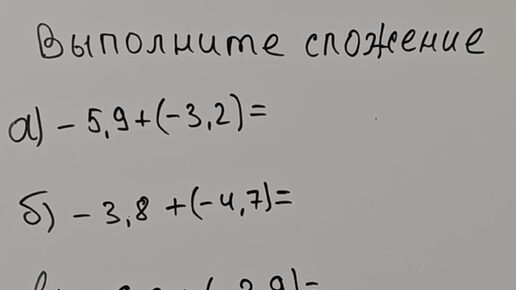 Выполните сложение
а) - 5,9 + (-3,2) =
б) - 3,8 + (-4,7) =